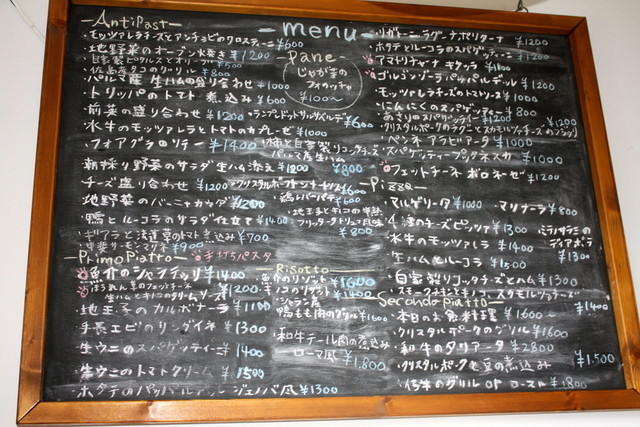 menu
Antipast
・モッツァレラチーズとアンチョビのクロスティーニ ¥600
・地野菜のオーブン焼き ¥1200
・自家製ピクルスとオリーブ ¥500
・佐島産タコのグリル ¥800
・パルマ産 生ハムの盛り合わせ ¥1000
・トリッパのトマト煮込み ¥600
・前菜の盛り合わせ ¥1200
・水牛のモッツァレラとトマトのカプレーゼ ¥1000
・フォアグラのソテー ¥1400
・朝採り野菜のサラダ 生ハム添え ¥1200
・チーズ盛り合わせ ¥1200
・地野菜のバーニャカウダ ¥1200
・鴨とルーコラのサラダ仕立て ¥1400
・ギアラと法蓮草のトマト煮込み ¥700
¥900
Pane
じゃが芋の
フォカッチャ
¥100〜
¥600
・柿と自家製リコッタチーズ
パルマ産生ハム
¥800
¥600
・鶏レバーパテ ¥600
・地玉子とキノコの
フリッタータ トリュフ風味
¥800
Primo Piatto
手打ちパスタ
魚介の ¥1400
ほうれん草のフェットチーネ
生ハムとキノコのクリームソース ¥1200
・地玉子のカルボナーラ ¥1100
・手長エビのリングイネ ¥1300
・生ウニのスパゲッティーニ ¥1400
・生ウニのトマトクリーム ¥1500
・ホタテの ジェノバ風 ¥1300
Risotto
・魚介のリゾット ¥1600
・キノコのリゾット ¥1400
・シャラン産
鴨もも肉のグリル ¥1600
・和牛テール肉の煮込み
ローマ風 ¥1,800
・リガトーニ ラグーナポリターナ ¥1200
・ホタテとルーコラのスパゲッティーニ ¥1200
アマトリチャーナ キタッラ ¥1100
ゴルゴンゾーラ パッパルデッレ ¥1200
・モッツァレラチーズのトマトソース ¥1000
・にんにくのスパゲッティーニ ¥800
・あさりのスパゲッティーニ ¥1200
・クリスタルポークのラグーとスカモルツァチーズの
・ペンネ アラビアータ ¥1000
・スパゲッティーニ プッタネスカ ¥1000
・フェットチーネ ボロネーゼ ¥1200
Pizza
・マルゲリータ ¥1000
・マリナーラ ¥800
・4種のチーズピッツァ ¥1300
・ミラノサラミの
ディアボラ
¥1300
・水牛のモッツァレラ ¥1400
・生ハムとルーコラ ¥1500
・自家製リコッタチーズとハム ¥1300
・スモークサーモンとキノコ、スカモルツァチーズ ¥1400
Secondo Piatto
・本日のお魚料理 ¥1600〜
・クリスタルポークのグリル ¥1600
・和牛のタリアータ ¥2800
・クリスタルポークと豆の煮込み ¥1.500
・仔牛のグリル or ロースト ¥1800